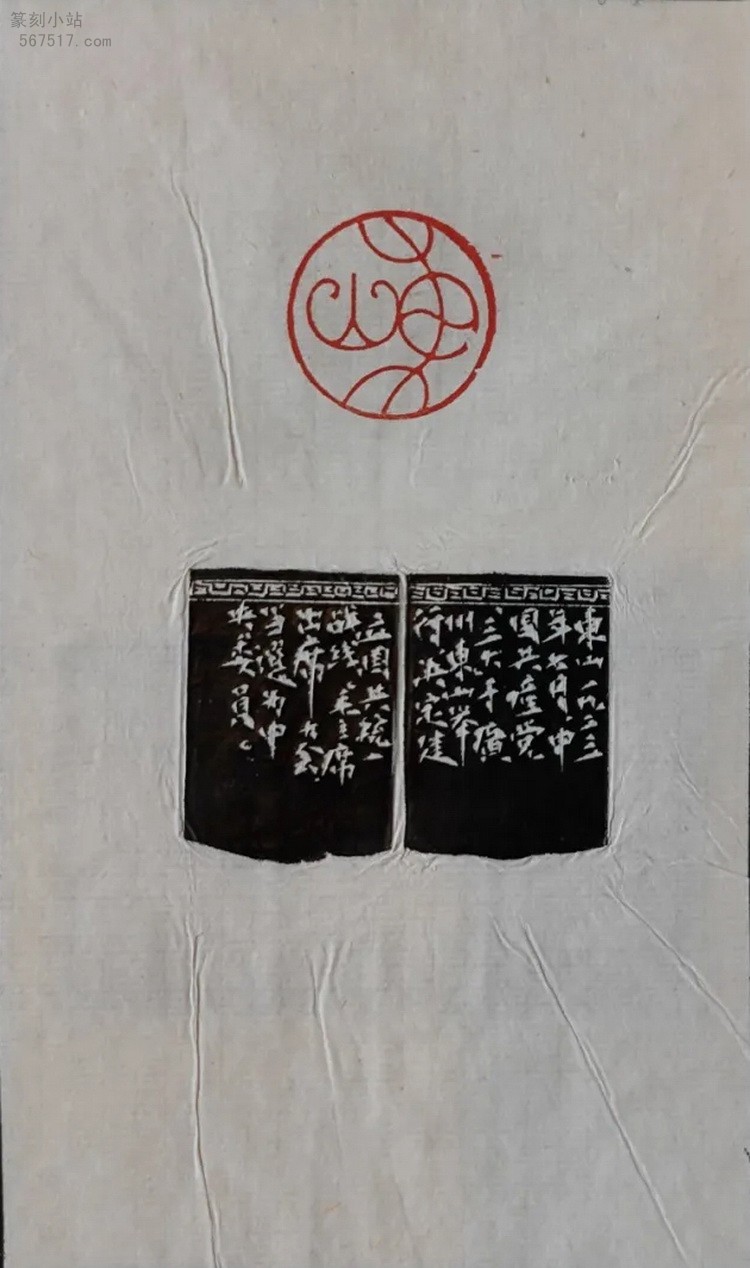 篆刻小站
567517.com
東山一九二三
年六月、中
國共產党
三大于廣
州東山举
行决定建
立國共統一
战线、毛主席
出席大会
当選为中
央委員。